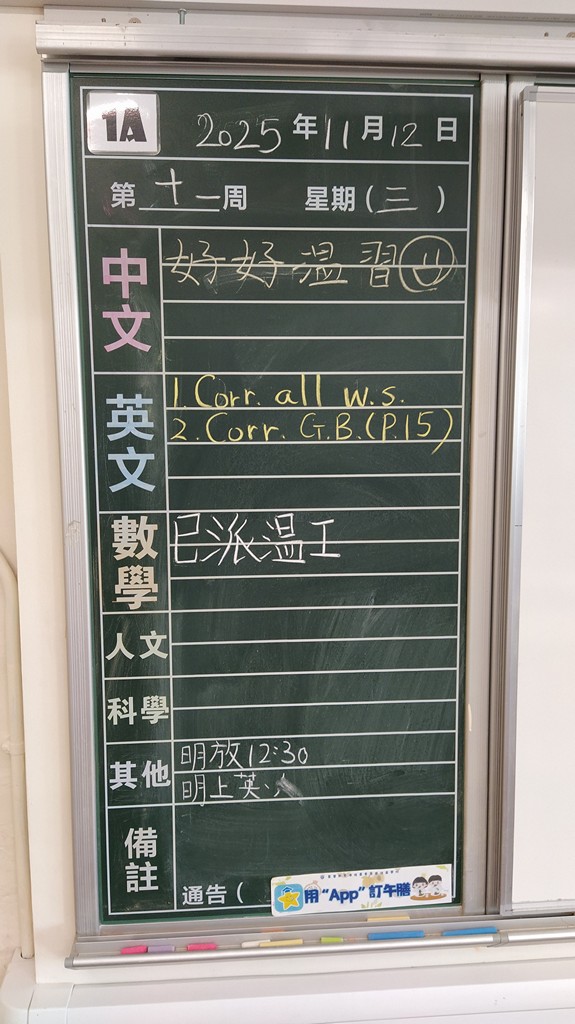 1A
2025年11月12日
第十一周 星期(三)
中文
好好温習
英文
1. Corr. all w.s.
2. Corr. G.B.(P.15)
數學
已派温工
人文
科學
其他
明放12:30
明上英
備註
通告(
用“App”訂午膳